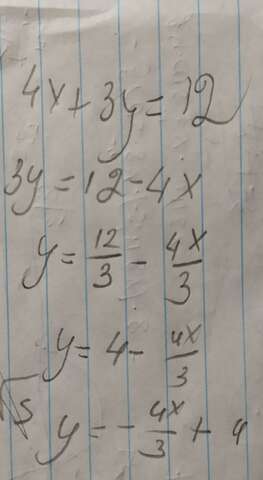 4x + 3y = 12
3y = 12 - 4x
y = 12/3 - 4x/3
y = 4 - 4x/3
y = - 4x/3 + 4